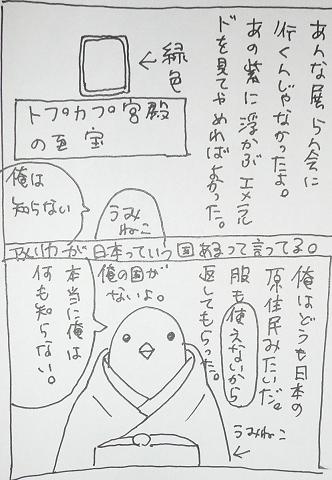 あんな展らん会に
行くんじゃなかったよ。
あの紫に浮かぶエメラル
ドを見てやめればよかった。
緑色
トプカプ宮殿
の至宝
俺は
知らない
うみ
ねこ
が日本っていう国あるって言ってる。
俺はどうも日本の
原住民みたいだ。
服も使えないから
返してもらった。
うみねこ
俺の国が
ないよ。
本当に俺は
何も知らない。